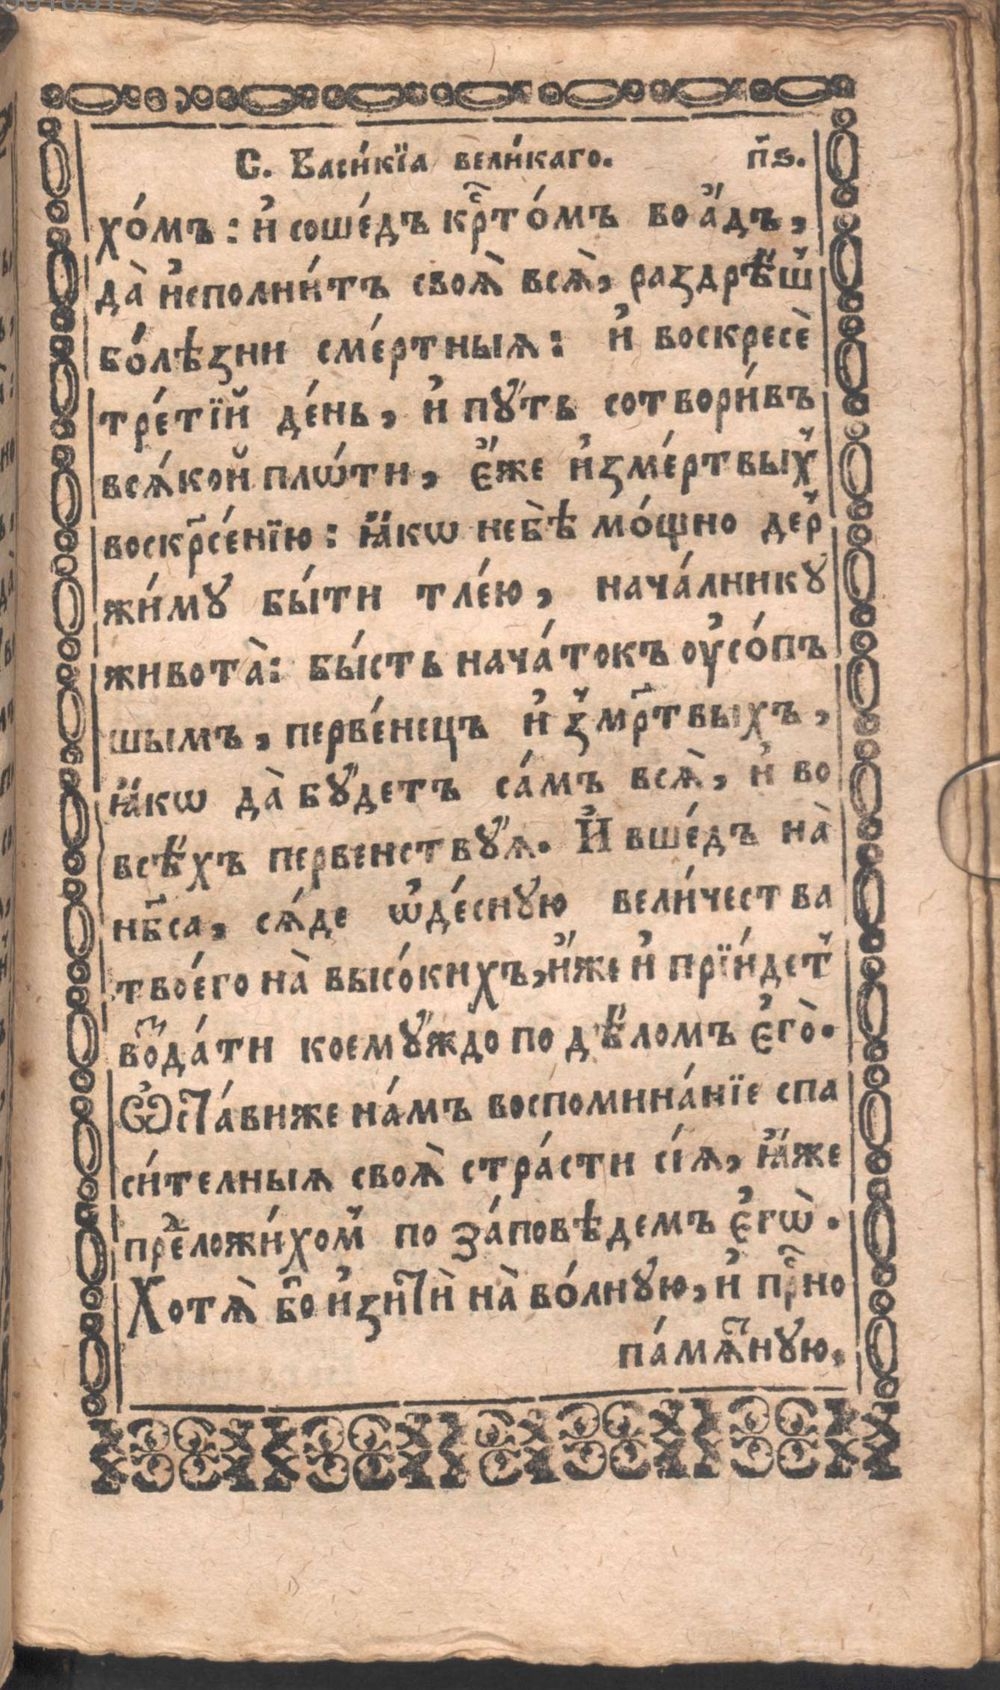 С. Васи́кїа вели́каго. п҃ѕ.
хо́мъ : и҆ соше́дъ крⷭ҇то́мъ во а҆́дъ ,
да̀ и҆сполни́тъ своѧ̀ всѧ̀, раздрѣ́ши
бо́лѣзни сме́ртныѧ : и҆ воскресѐ
тре́тїй де́нь , и҆ пꙋ́ть сотвори́въ
всѧ́кой пло́ти , є҆́же и҆зме́ртвыхъ
воскрⷭ҇се́нїю : ꙗ҆́кѡ небѣ̀ мо́щно дер
жи́мꙋ бы́ти тле́ю , нача́лникꙋ
живота̀: бы́сть нача́токъ оу҆со́пъ
шымъ , перве́нецъ и҆ з̾мрⷮ҇твыхъ ,
ꙗ҆́кѡ да̀ бꙋ́детъ са́мъ всѧ̀, и҆ во
всѣ́хъ первенствꙋ́ѧ . И҆ вше́дъ на̀
нб҃са , сѧ́де ѡ҆де́снꙋю вели́чества
твоего̀ на̀ высо́кихъ, и҆́же и҆ прїи́детъ
воⷥда́ти коемꙋ́ждо по дѣ́ломъ є҆го̀ .
Ѡ҆ста́виже на́мъ воспомина́нїе спа
си́телныѧ своѧ̀ стра́сти сїѧ̀, ꙗ҆́же
преⷣложи́хомъ по за́повѣдемъ є҆гѡ̀ .
Хотѧ̀ бо и҆зыⷣтѝ на̀ во́лнꙋю, и҆ прⷭ҇но
па́мѧⷮнꙋю,